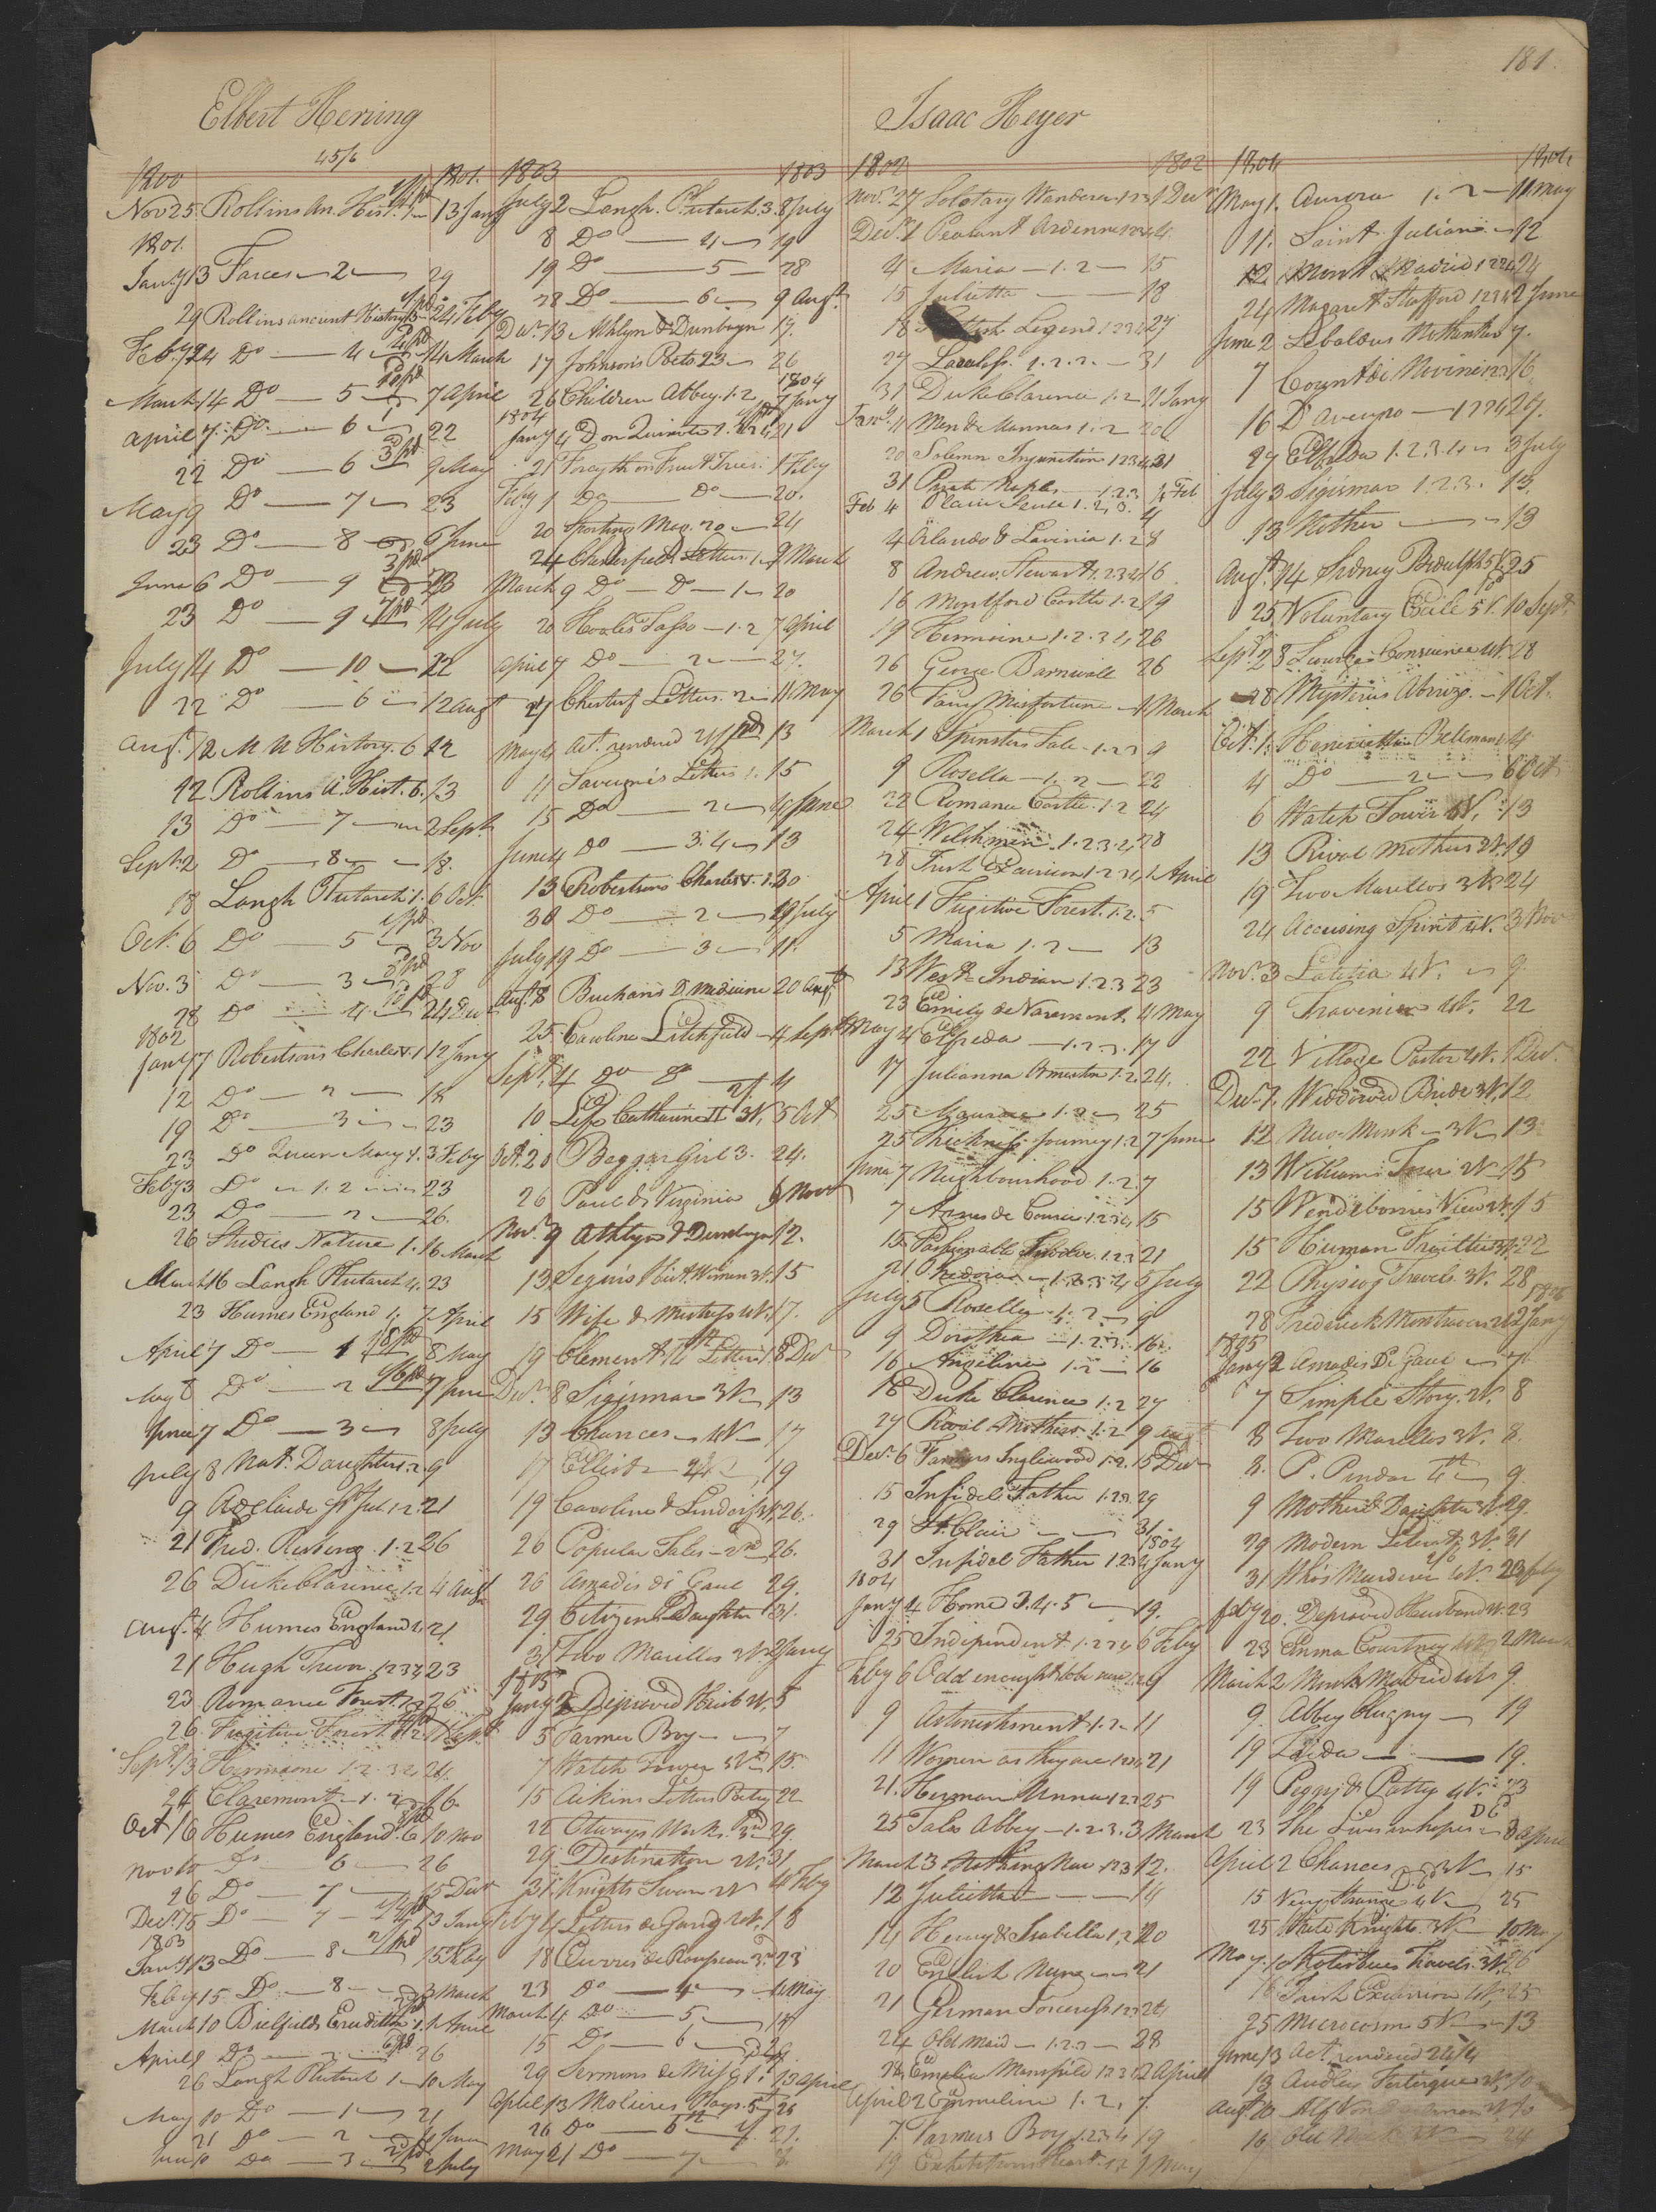 181.
Elbert Herring
45/6
1800 1801.
Nov 25 Rollins An. Hist. 13 Jany
1801.
Jany 13 Farces 2 29
29 Rollins ancient History 24 Feby
Feby 24 Do 4 14 March
March 14 Do 5 7 April
April 7 Do 6 22
22 Do 6 9 May
May 9 Do 7 23
23 Do 8 6 June
June 6 Do 9 23
23 Do 9 14 July
July 14 Do 10 22
22 Do 6 12 Augt
Augt. 12 M U History. 6 12
12 Rollins A. Hist. 6. 13
13 Do 7 2 Sept
Sept. 2 Do 8 18.
18 Langh Plutarch 1. 6 Oct.
Oct. 6 Do 5 3 Nov
Nov. 3 Do 3 28
28 Do 4 24 Decr
1802
Jany 7 Robertsons Charles V. 1 12 Jany
12 Do 2 18
19 Do 3 23
23 Do Queen Mary 1. 3 Feby
Feby 3 Do 1. 2 23
23 Do 2 26.
26 Studies Nature 1. 16 March
March 16 Langh Plutarch 4. 23
23 Humes England 1. 7 April
April 7 Do 1 8 May
May 8 Do 2 7 June
June 7 Do 3 8 July
July 8 Nat. Daughter 1. 2. 9
9 Adelaide 1. 2. 21
21 Fred. 1. 2 26
26 Duke Clarence 1. 2 4 Augt
Augt. 4 Humes England 4. 21
21 Hugh Trevor 1 2 3 4 23
23 Romance Forest 1 2 26
26 Fugitive Forest 1 2 Sept
Sept. 13 Hermione 1. 2. 3 4 24.
24 Claremont 1. 2 16.
Oct 16 Humes England. 6 10 Nov
Nov 10 Do 6 26
26 Do 7 15 Decr
Decr. 15 Do 7 13 Jany
1803
Jany 13 Do 8 15 Feby
Feby 15. Do 8 3 March
March 10 Bielfields Erudition 1. 1 April
April 1 Do 2 26
26 Langh Plutarch 1 10 May
May 10 Do 1 21
21 Do 2 June
June Do 3 2 July
1803 1803
July 2 Langh. Plutarch. 3. 8 July
8 Do 4 19
19 Do 5 28
28 Do 6 9 Augt.
Decr. 13 Athlyn & Dunbayn 17.
17 Johnsons Poets 23 26
1804
26 Children Abbey. 1. 2 7 Jany
1804
Jany 4 Don Quixote 1. 2 3 4 21
21 Forsyth on Fruit Trees. 1 Feby
Feby. 1 Do Do 20.
20 Sporting Mag. 20 24
24 Chesterfield Letters. 1 9 March
March 9 Do Do 1 20
20 Hooles Tasso 1. 2 7 April
April 7 Do 2 27.
27 Chesterf Letters. 2 11 May
May 4 act. rendered 13
11 Savagnes Letters 1. 15
15 Do 2 4 June
June 4 Do 3. 4 13
13 Robertsons Charles V. 1. 30
30 Do 2 19 July
July 19 Do 3 11.
Augt 8 Buchans D Medicine 20 Augt
25 Caroline Litchfield 4 Sept
Sept. 4 Do 4
10 Life Catharine II 3V. 5 Oct
Oct. 20 Beggar Girl 3. 24.
26 Paul & Virginia 9 Novr
Novr. 9 Athlyn & Dunbayn 12.
13 Segurs Hist. Women 3V. 15
15 Wife & Mistress 4V. 17.
19 Clement 14th Letters 8 Decr
Decr. 8 Sigismar 3V 13
13 Chances 4V 17
17 Elliott 19
19 Caroline & 26.
26 Popular Tales 26.
26 Amadis di Gaul 29.
29. Citizens Daughter 31.
31 Two Marillos 2V. 2 Jany
1805
Jany 2 Depraved Husb 2V. 5
5 Farmer Boy 7
7 Watch Tower 5V 15.
15 Aikins Letters Poetry 22
22 Otways Works. 3rd 29.
29. Destination 2V. 31
31. Knights Swan 4 Feby
Feby 4 Letters 18
18 Ouvres de Rousseau 3. 23
23 Do 4 4 May
March 4 Do 5 15
15 Do 6 29.
29 Sermons 13 April
April 13 Molieres Plays. 5 26
26 Do 6th 21.
May 21 Do 7 8.
Isaac Heyer
1802 1802
Novr. 27 Solotary Wanderer 1 2 3 1 Decr
Decr. 1 Peasant Ardenne 1 2 3 4 4.
4 Maria 1. 2 15
15 Julietta 18
18 Legend 1 2 3 4 27
27 1. 2. 3. 31
31 Duke Clarence 1. 2 11 Jany
Jany. 11 Men & Manners 1. 2 20
20 Solemn Injunction 1 2 3 4 31
31 Pirate Naples 1. 2. 3 4 Feb
Feb 4 Plain Sense 1. 2. 3. 4
4 Orlando & Lavinia 1. 2 8
8 Andrew Stewart. 1 2 3 4 16
16 Montford Castle 1. 2 19
19 Hermione 1. 2. 3 4 26
26 George Barnwell 26
26 Fairy Misfortune 1 March
March 1 Spinsters Tale 1. 2 3 9
9 Rosella 1. 2 22
22 Romance Castle. 1. 2 24
24 Welshmen 1. 2. 3. 4 28
28 Irish Excursion 1 2 3 4 1 April
April 1 Fugitive Forest. 1. 2. 5
5 Maria 1. 2 13
13 West Indian 1. 2. 3 23
23 Emily de Varmont 4 May
May 4 Elfreda 1. 2. 3. 17
17 Julianna Ormeston 1. 2. 24.
25 1. 2 25
25 Thickness Journey 1. 2 7 June
June 7 Neighbourhood 1. 2. 7
7 Agnes de Courci 1. 2 3 4, 15
15 Fashionable Involve. 1. 2. 3 21
21 1. 2. 3. 4 5 July
July 5 Rosella 1. 2. 9
9 Dorothea 1. 2. 3. 16.
16 Angelina 1. 2 16
16 Duke Clarence 1. 2 27
27 Rival Mothers 1. 2 9 Augt
Decr. 6 Farmer Inglewood 1. 2. 15 Decr
15 Infidel Father 1. 2 3. 29
29 St. Clair 31
1804
31 Infidel Father 1 2 3 4 Jany
1804
Jany 4 Home 3. 4. 5 19.
25 Independent. 1. 2 6 Feby
Feby 6 Odd enough to be sure 1. 2 9
9 Astonishment 1. 2 11
11 Women as they are 1 2 3 4 21
21. Herman Unna 1 2 3 25
25 Tales Abbey 1. 2. 3. 3 March
March 3 Nothing New 1 2 3 12.
12 Julietta 14
14 Henry & Isabella 1. 2 20
20 English Nun 21
21 German Sorceress 1 2 3 24
24 Old Maid 1. 2. 3 28
28 Emelia Mansfield 1 2 3 12 April
April 2 Emmeline 1. 2, 7.
7. Farmers Boy 1. 2 3 4 19
19 Exhibitions Heart. 1. 2 1 May
1804 1804
May 1. Aurora 1. 2 11 May
11. Saint Julian 12
12. Monk Madrid 1 2 3 4 24
24 Magaret Stafford 1 2 3 4 2 June
June 2 Sebaldus Nothanker 7.
7 Count di Novini 1 2 3 16
16 D Avegno 1 2 3 4 27.
27 Elfrida 1. 2. 3. 4 3 July
July 3 Sigismar 1. 2. 3. 13.
13 Nither 13
Augt. 14 Sidney Bidulph 5V. 25
25 Voluntary Exile 5V. 10 Sept
Sept. 23 Conscience 4V. 28
28 Mysterious 1 Oct.
Oct. 1. Henrietta Bellmann 4
4 Do 2 6 Oct
6 Watch Tower 5V. 13
13 Rival Mothers 2V. 19
19 Two Marillos 3V. 24
24 Accusing Spirit 4V. 3 Nov
Novr. 3 Latitia 4V. 9.
9 4V. 22
22 Village Pastor 4V. 1 Decr.
Decr. 1. Widdowed Bride 3V. 12
12 New Monk 3V 13
13 Williams 2V 15
15 Wendebornes View 2V. 15
15 Human Frailties 3V. 22
22 Physiog Travels. 3V. 28
1805
28 Frederick 2V 2 Jany
1805
Jany 2 Amadis Di Gaul 7.
7 Simple Story. 2V. 8
8 Two Marellos 3V. 8.
8. P. Pindar 4th 9.
9 Mother & Daughter 3V. 29.
29 Modern Literat. 3V. 31
31 Who's Murderer 4V. 20 Feby
Feby 20. Depraved Husband 2V. 23
23 Emma Courtney 2 March
March 2 Monk Madrid 4V. 9.
9. Abbey Clugny 19
19 Zaida 19.
19 Peggy & Patty 4V. 23
23 3 April
April 2 Chances 3V 15
15 Very Strange 4V 25
25 White Knight. 3V 10 May
May. 10 Travels 3V. 16
16 Irish Excursion 4V. 25
25 Microcosm 5V 13
June 13 act. rendered 24/4
13 Audley Fortesque 2V. 10
Augt 10 2V. 16
16 Old 24